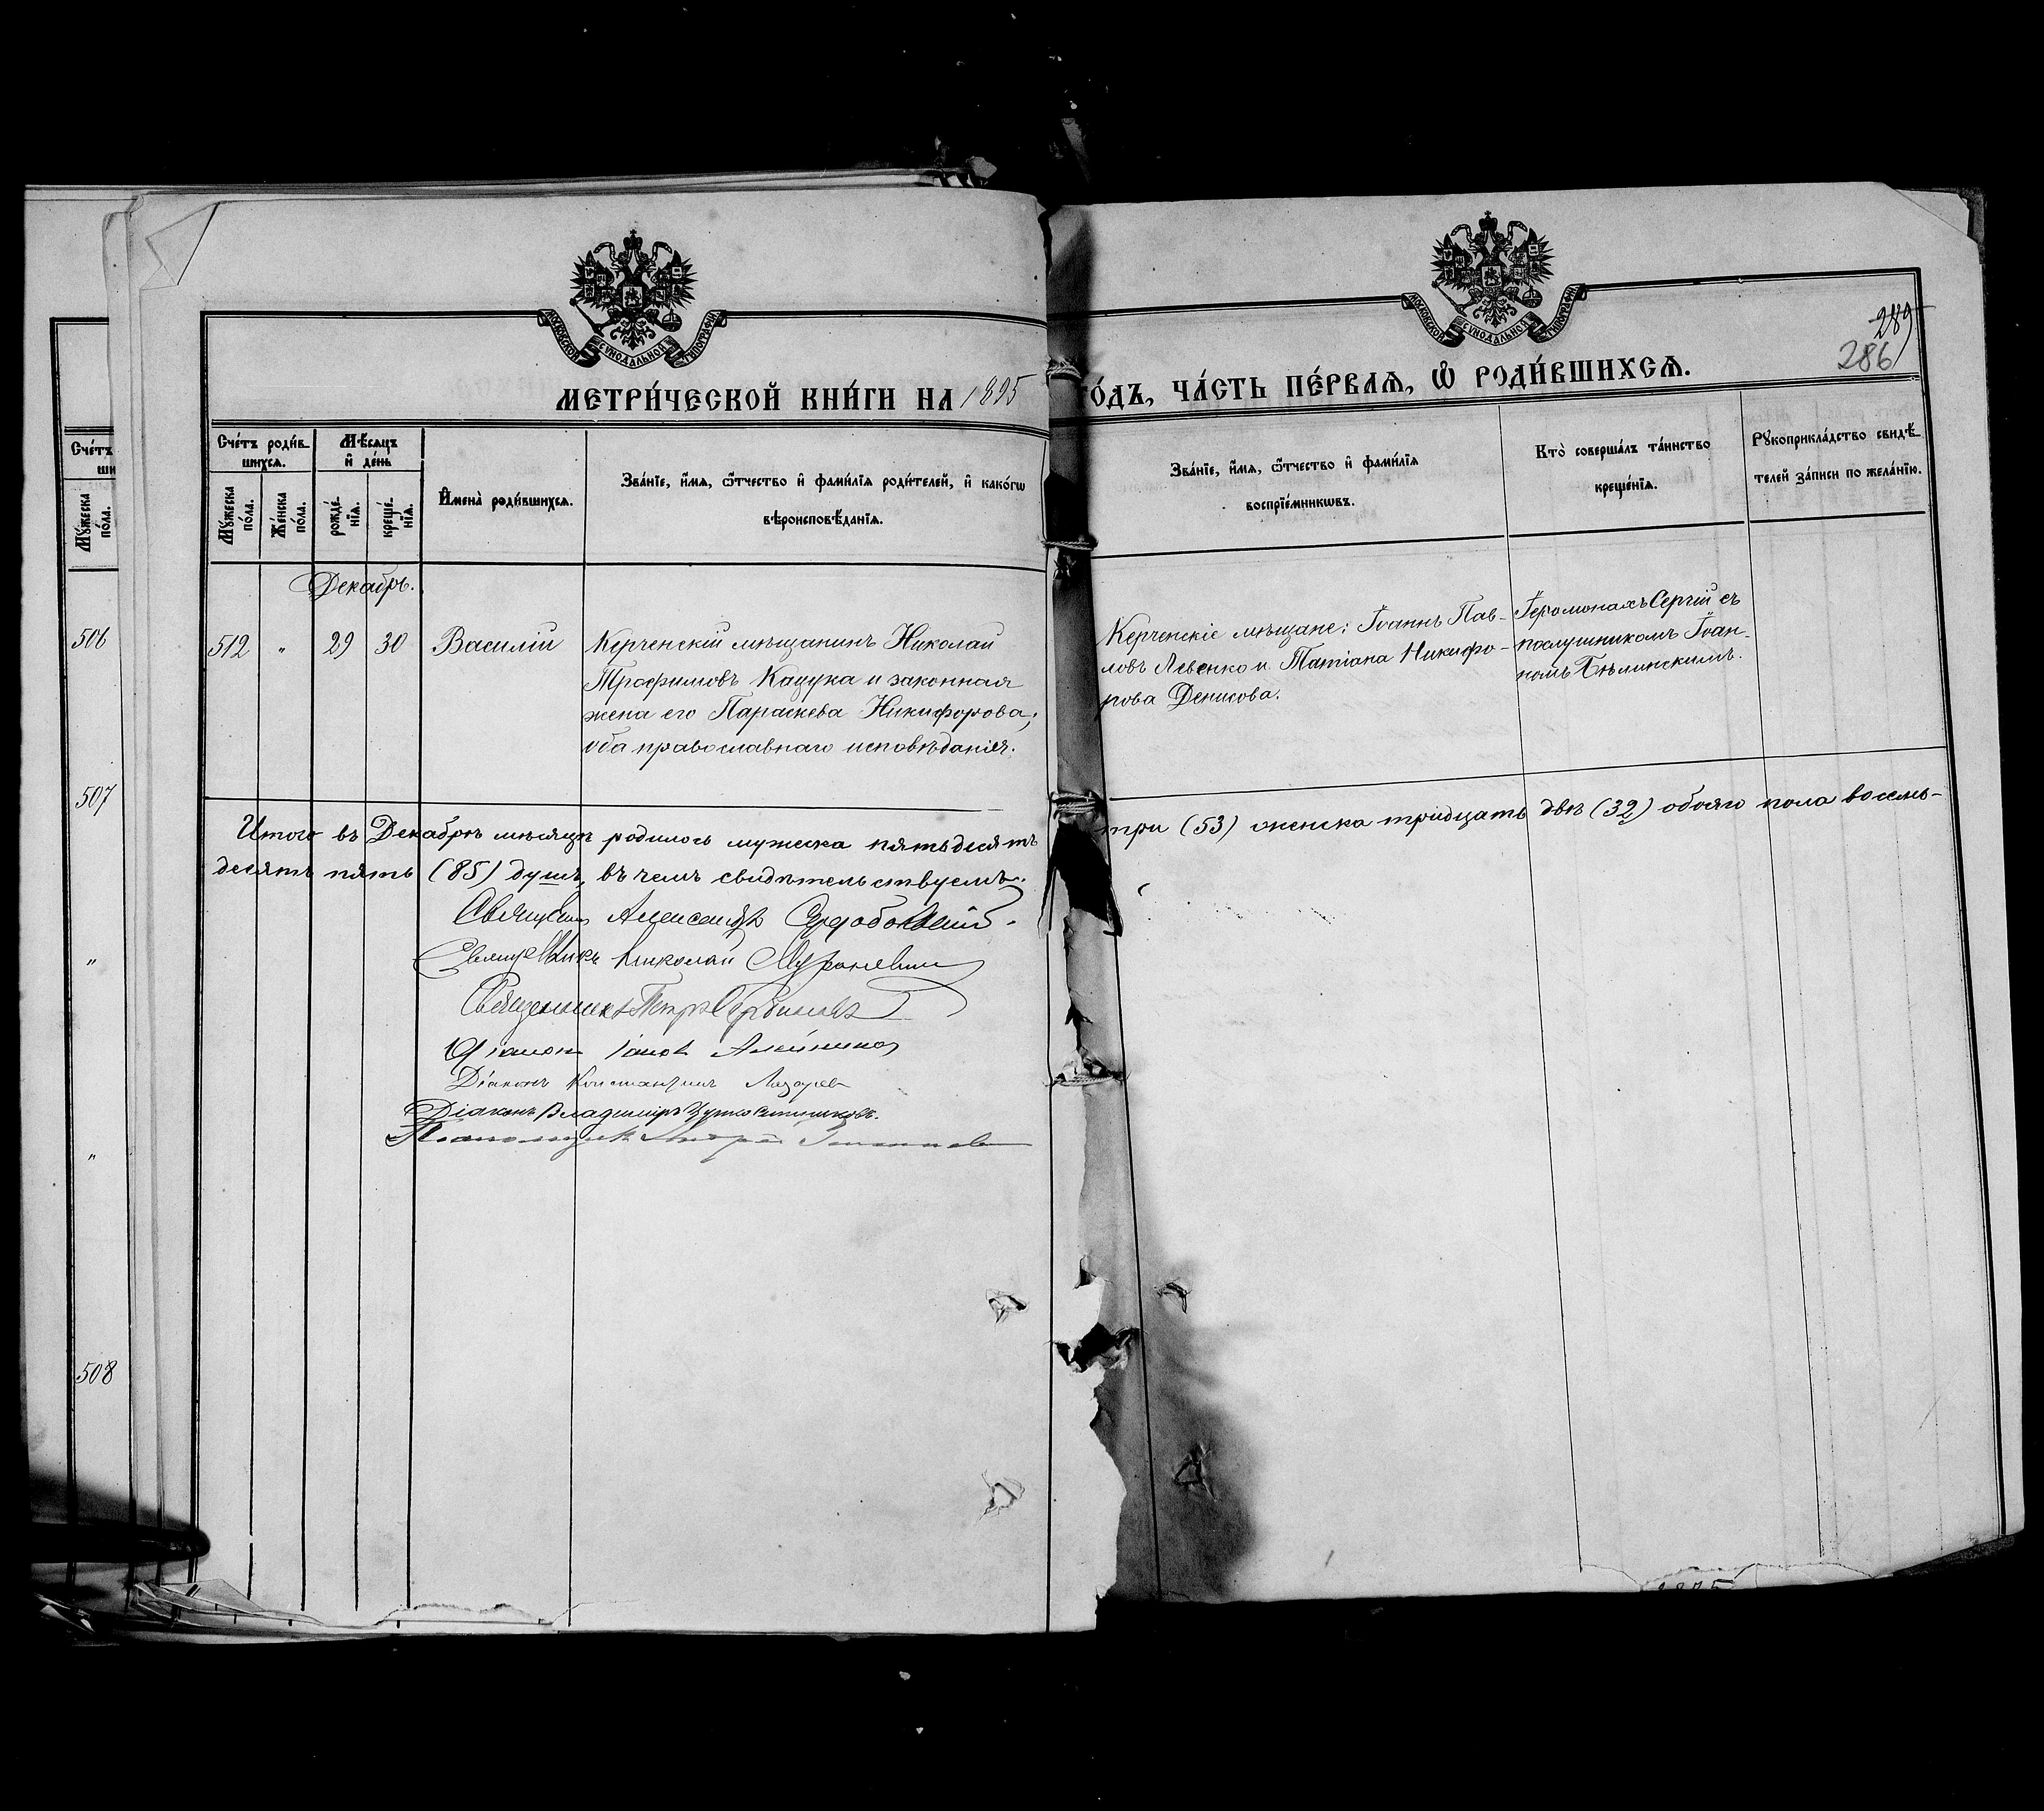 МОСКОВСКОЙ СѴНОДАЛЬНОЙ ТИПОГРАФІИ
МОСКОВСКОЙ СѴНОДАЛЬНОЙ ТИПОГРАФІИ
289
286
МЕТРИ́ЧЕСКОЙ КНИ́ГИ НА 1895 ГО́ДЪ, ЧА́СТЬ ПЕ́РВАѦ, Ѡ РОДИ́ВШИХСѦ.
Сче́тъ
ши
Мꙋ́жеска по́ла.
506
507
"
"
508
Сче́тъ роди́в-
шихсѧ.
Мꙋ́жеска по́ла.
Же́нска по́ла.
Мѣ́сѧцъ
и҆ де́нь
рожде́-нїѧ.
креще́-нїѧ.
И҆мена̀ роди́вшихсѧ.
Зва́нїе, и҆́мѧ, ѻ҆́тчество и҆ фами́лїѧ роди́телей, и҆ како́гѡ
вѣроисповѣ́данїѧ.
Зва́нїе, и҆́мѧ, ѻ҆́тчество и҆ фами́лїѧ
воспрїе́мникѡвъ.
Кто̀ соверша́лъ та́инство
креще́нїѧ.
Рꙋкоприкла́дство свидѣ́-
телей за́писи по жела́нїю.
Декабрь.
512 " 29 30 Василій
Керченскій мѣщанинъ Николай
Трофимовъ Кацука и законная
жена его Параскева Никифорова;
оба православнаго исповѣданія.
Керченскіе мѣщане: Іоаннъ Пав-
ловъ Левенко и Татіана Никифо-
рова Денисова.
Іеромонахъ Сергій съ
послушникомъ Іоан-
номъ Бѣлинскимъ.
Итого въ Декабрѣ мѣсяцѣ родилось мужеска пятьдесятъ три (53) женска тридцать двѣ (32) обоего пола восемь-
десятъ пять (85) душъ, въ чемъ свидѣтельствуемъ:
Священникъ Александръ Сердобольскій.
Священникъ Николай
Священникъ Петръ Сербиновъ
Діаконъ Іаковъ
Діаконъ Константинъ Лазарев
Діаконъ Владиміръ
Псаломщикъ Андрей